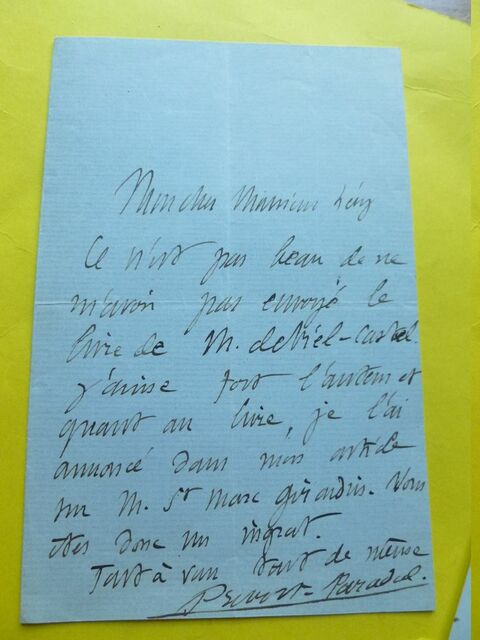 Mon cher Monsieur Lévy
Ce n'est pas beau de ne
m'avoir pas envoyé le
livre de M. de Viel-Castel.
J'aime fort l'auteur et
quant au livre, je l'ai
annoncé dans mon article
sur M. St Marc Girardin. Vous
êtes donc un ingrat.
Tout à vous tout de même
Prevost-Paradol.